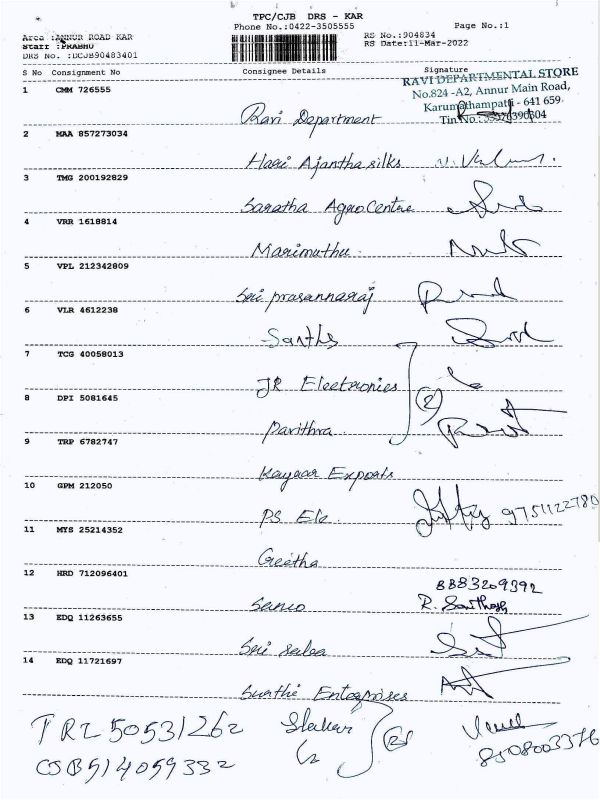 TPC/CJB DRS - KAR
Phone No.:0422-3505555 Page No.:1
Area :ANNUR ROAD KAR RS No.:904834
Staff :PRABHU RS Date:11-Mar-2022
DRS No. :DCJB90483401
S No Consignment No Consignee Details Signature
RAVI DEPARTMENTAL STORE
No.824 -A2, Annur Main Road,
Karumathampatti - 641 659.
Tin No : 33576390304
1 CMM 726555
Ravi Department
2 MAA 857273034
Hari Ajantha silks
3 TMG 200192829
Saratha Agro Centre
4 VRR 1618814
Marimuthu
5 VPL 212342809
Sri prasannaraj
6 VLR 4612238
Sanths
7 TCG 40058013
JR Electronics (2)
8 DPI 5081645
Pavithra
9 TRP 6782747
Kayaar Exports
10 GPM 212050
PS Ele 9751122780
11 MYS 25214352
Geetha
12 HRD 712096401
8883209392
R. Santhosh
13 EDQ 11263655
Sri
14 EDQ 11721697
Swathi Enterprises
TRZ 50531262 Shekar (2)
CSB514059332 8508003376